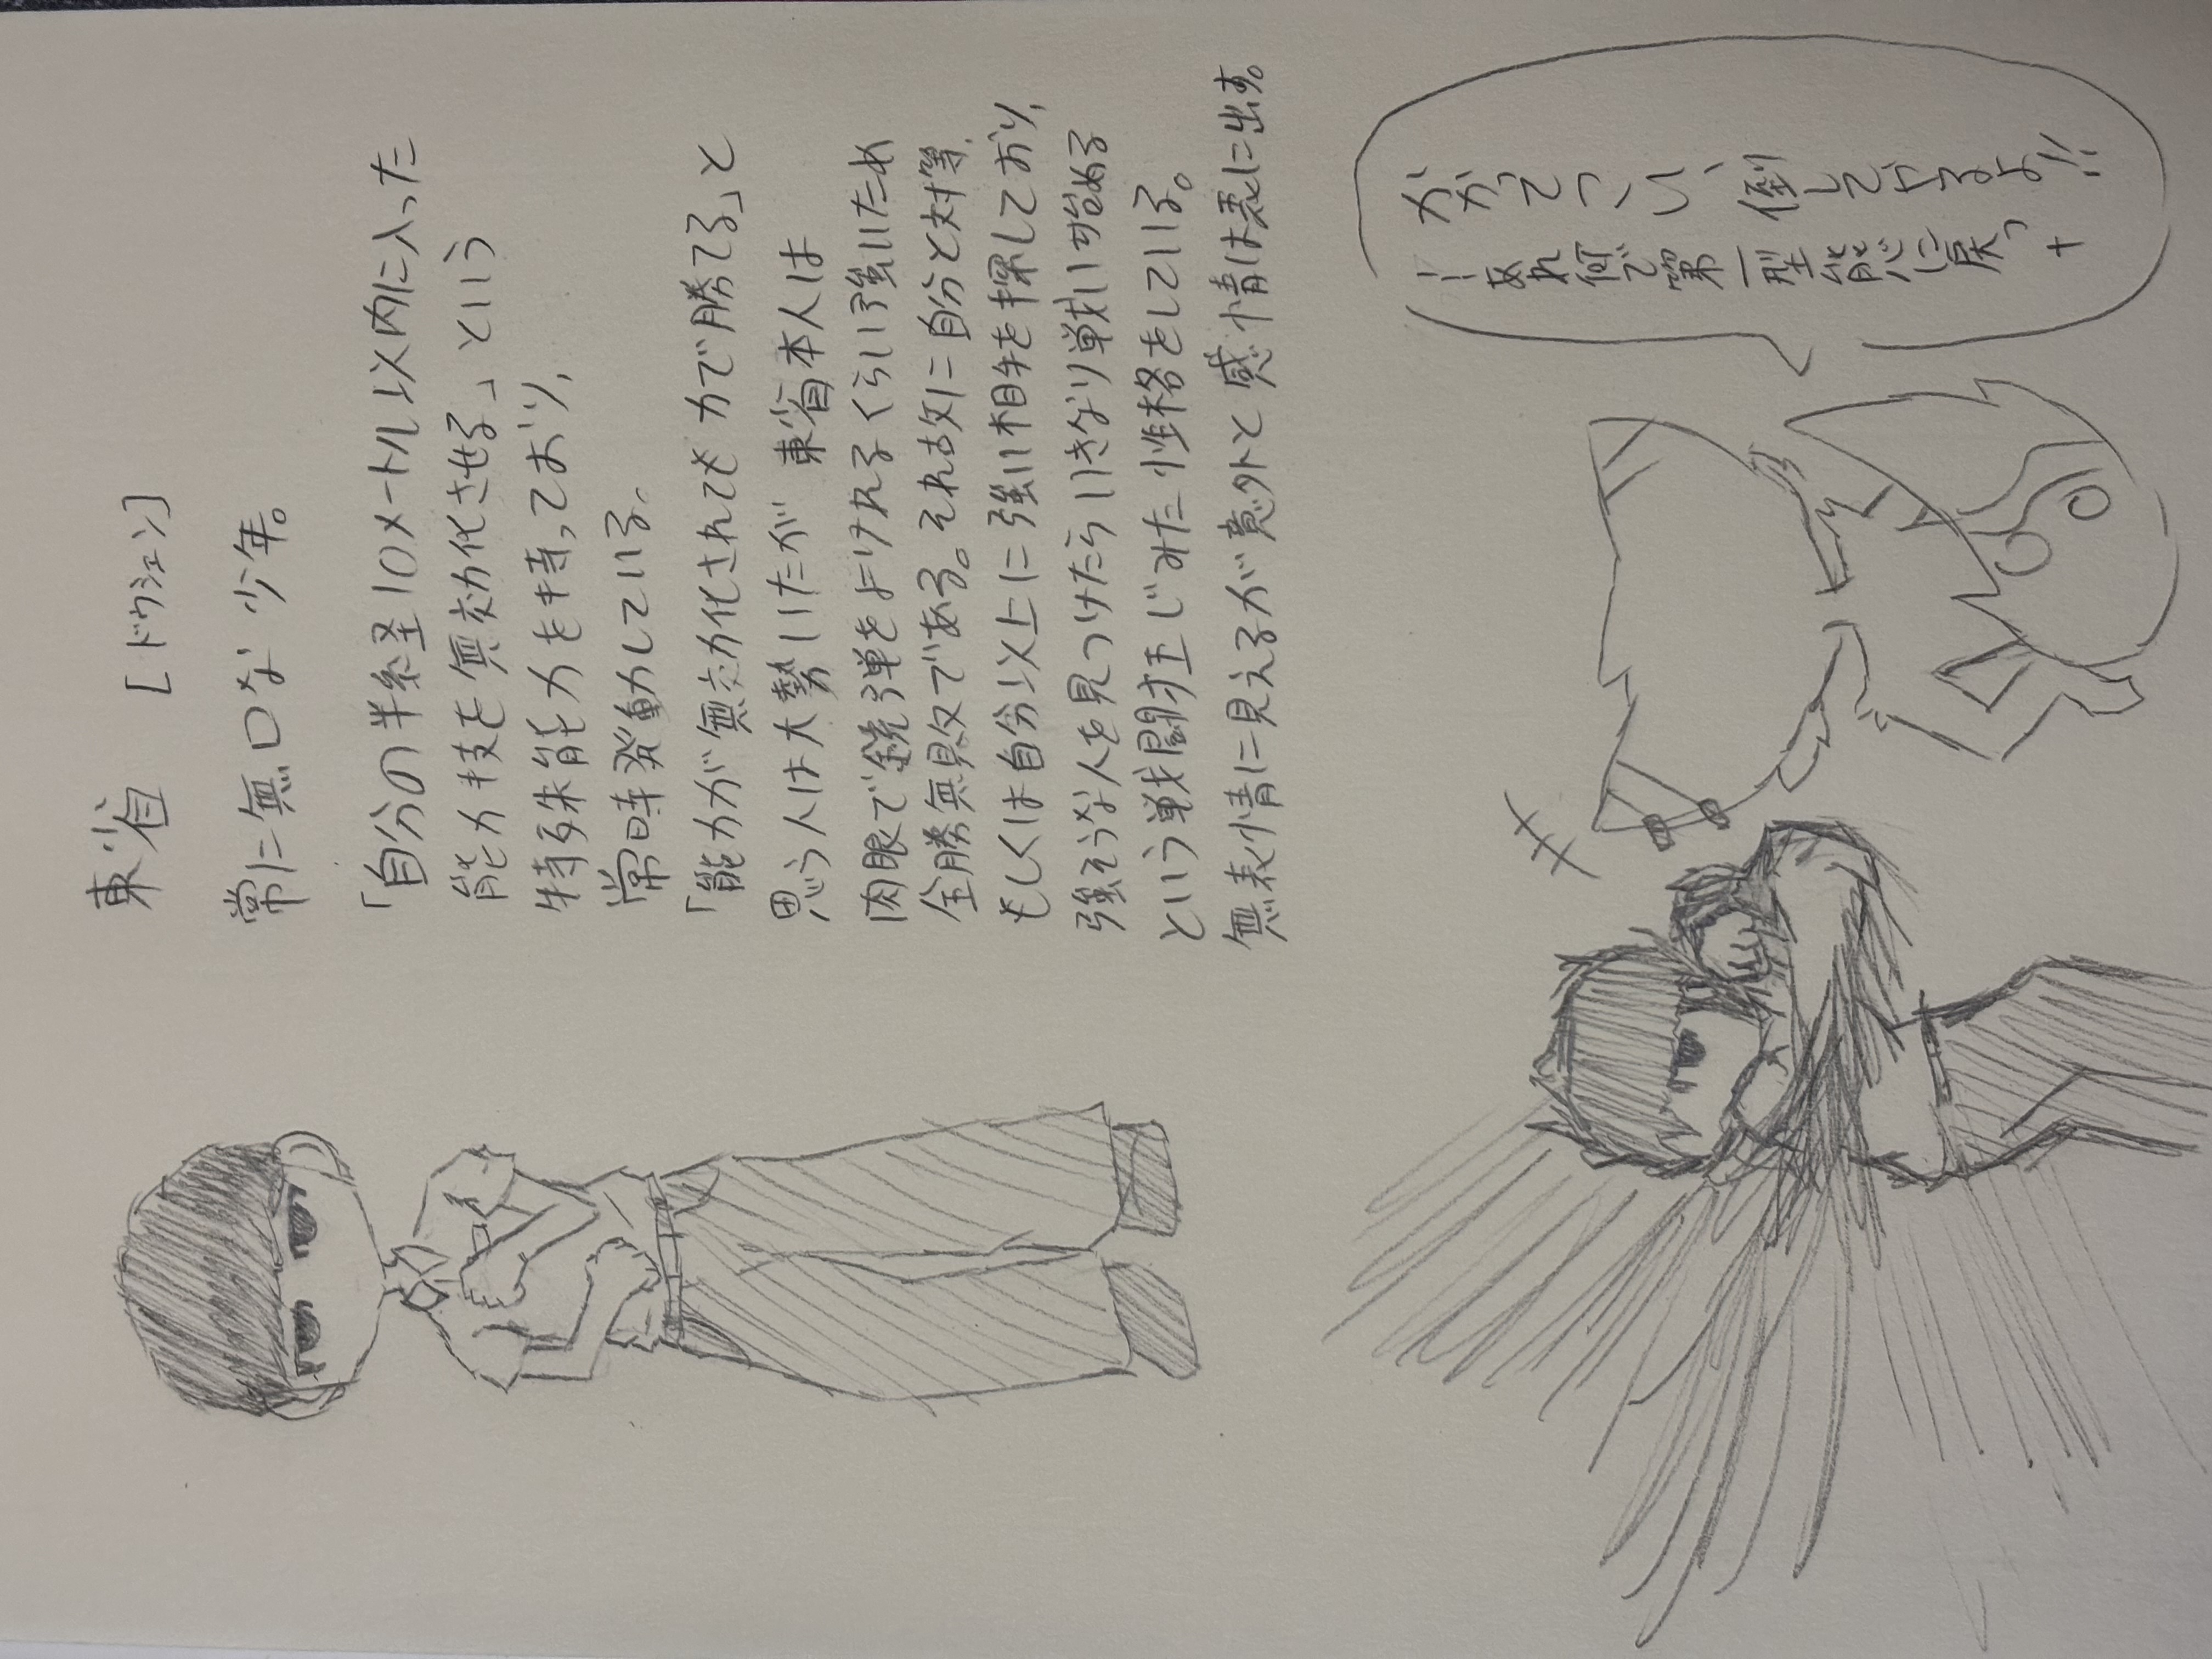 東省 [ドウシェン]
常に無口な少年。
「自分の半径10メートル以内に入った
能力や技を無効化させる」という
特殊能力を持っており、
常時発動している。
「能力が無効化されても力で勝てる」と
思う人は大勢いたが 東省本人は
肉眼で銃弾をよけれるくらい強いため
全勝無敗である。それ故に自分と対等、
もしくは自分以上に強い相手を探しており、
強そうな人を見つけたらいきなり戦い始める
という戦闘狂じみた性格をしている。
無表情に見えるが意外と感情は表に出す。
かかってこい、倒してやるよ!!
…あれ何で第一型態に戻っ